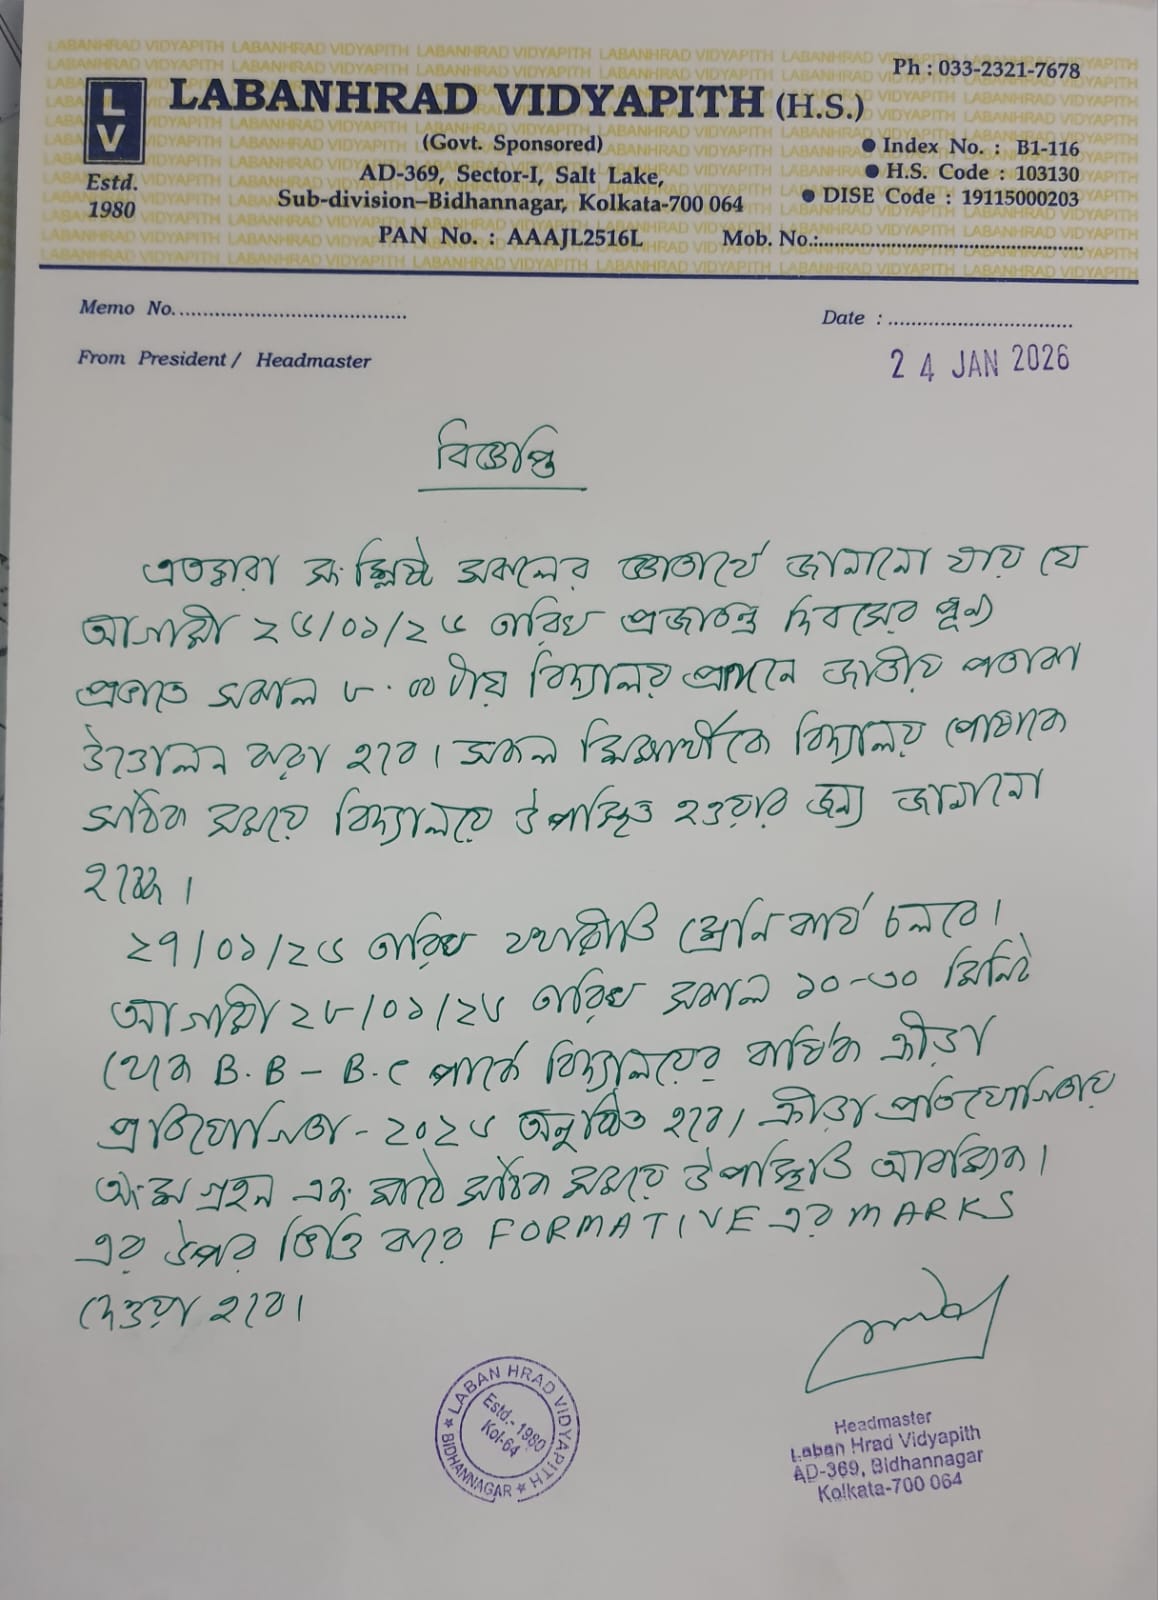 LABANHRAD VIDYAPITH (H.S.)
Ph : 033-2321-7678
LV
Estd.
1980
(Govt. Sponsored)
AD-369, Sector-I, Salt Lake,
Sub-division–Bidhannagar, Kolkata-700 064
PAN No. : AAAJL2516L
● Index No. : B1-116
● H.S. Code : 103130
● DISE Code : 19115000203
Mob. No.:
Memo No.
Date :
From President / Headmaster
24 JAN 2026
বিজ্ঞপ্তি
এতদ্বারা সংশ্লিষ্ট সকলের জ্ঞাতার্থে জানানো যায় যে
আগামী ২৬/০১/২৬ তারিখ প্রজাতন্ত্র দিবসের পূন্য
প্রভাতে সকাল ৮.০০ টায় বিদ্যালয় প্রাঙ্গনে জাতীয় পতাকা
উত্তোলন করা হবে। সকল শিক্ষার্থীকে বিদ্যালয় পোষাকে
সঠিক সময়ে বিদ্যালয়ে উপস্থিত হওয়ার জন্য জানানো
হচ্ছে।
২৭/০১/২৬ তারিখ যথারীতি শ্রেনি কার্য চলবে।
আগামী ২৮/০১/২৬ তারিখ সকাল ১০-৩০ মিনিট
থেকে B.B – B.C পার্কে বিদ্যালয়ের বার্ষিক ক্রীড়া
প্রতিযোগিতা - ২০২৬ অনুষ্ঠিত হবে। ক্রীড়া প্রতিযোগিতায়
অংশগ্রহন এবং মাঠে সঠিক সময়ে উপস্থিতি আবশ্যিক।
এর উপর ভিত্তি করে FORMATIVE এর MARKS
দেওয়া হবে।
LABAN HRAD VIDYAPITH
★ BIDHANNAGAR ★
Estd.- 1980
Kol-64
Headmaster
Laban Hrad Vidyapith
AD-369, Bidhannagar
Kolkata-700 064